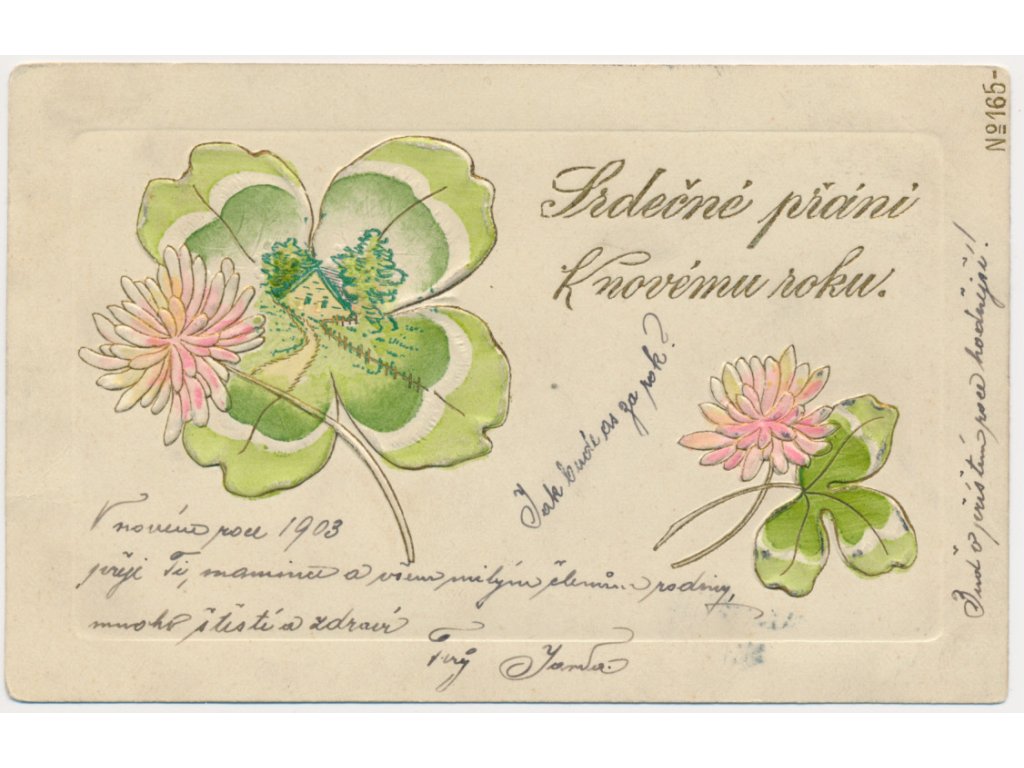 No 165-
Srdečné přáni
K novému roku.
Jak bude as za rok?
V novém roce 1903
přeje Ti, mamince a všem milým členům rodiny,
mnoho štěstí a zdraví
Tvůj Jarda.
Buď v příštím roce hodnější!